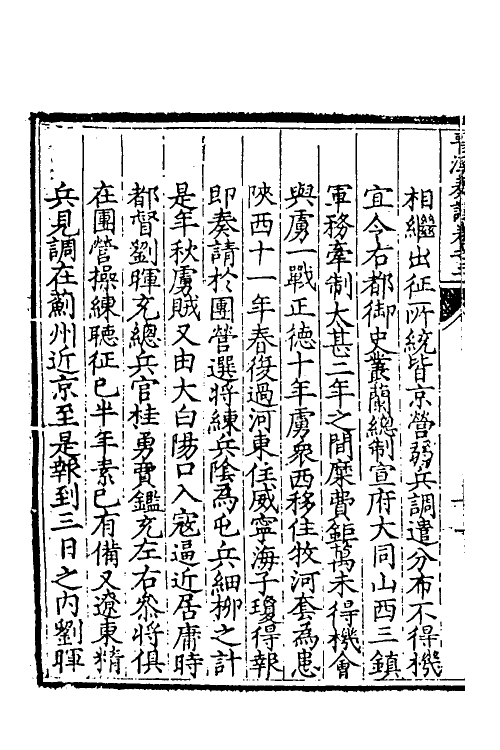 相繼出征所統皆京營弱兵調遣分布不得機
宜今右都御史叢蘭總制宣府大同山西三鎮
軍務牽制太甚二年之間糜費鉅萬未得機會
與虜一戰正德十年虜衆西移住牧河套為患
陜西十一年春復過河東住威寧海子瓊得報
即奏請於團營選將練兵陰為屯兵細柳之計
是年秋虜賊又由大白陽口入寇逼近居庸時
都督劉暉充總兵官桂勇賈鑑充左右叅將俱
在團營操練聽征已半年素已有備又遼東精
兵見調在薊州近京至是報到三日之內劉暉